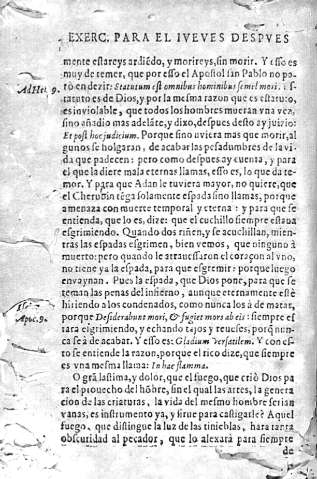 EXERC. PARA EL IVEVES DESPVES
mente estareys ardiẽdo, y morireys, sin morir. Y esso es
muy de temer, que por esso el Apostol san Pablo no pa-
Ad Heb. 9.
rò en dezir: Statutum est omnibus hominibus semel mori: es-
tatuto es de Dios, y por la mesma razon que es estatuto,
es inviolable, que todos los hombres mueran vna vez,
sino añadio mas adelãte, y dixo, despues desto ay juizio:
Et post hoc judicium. Porque sino uviera mas que morir, al
gunos se holgaran, de acabar las pesadumbres de la vi-
da que padecen: pero como despues ay cuenta, y para
el que la diere mala eternas llamas, esso es, lo que da te-
mor. Y para que Adan le tuviera mayor, no quiere, que
el Cherubin tẽga solamente espada sino llamas, porque
amenaza con muerte temporal, y eterna: y para que se
entienda, que lo es, dize: que el cuchillo siempre estaua
esgrimiendo. Quando dos riñen, y se acuchillan, mien-
tràs las espadas esgrimen, bien vemos, que ninguno à
muerto: pero quando le atrauessaron el coraçon al vno,
no tiene ya la espada, para que esgremir: porque luego
envaynan. Pues la espada, que Dios pone, para que se
teman las penas del infierno, aunque eternamente estè
hiriendo a los condenados, como nunca los à de matar,
Apoc. 9.
porque Desiderabunt mori, & fugiet mors ab eis: siempre es
tara esgrimiendo, y echando tajos y reueses, porq̃ nun-
ca se à de acabar. Y esso es: Gladium versatilem. Y con es-
to se entiende la razon, porque el rico dize, que siempre
es vna mesma llama: In hac flamma.
O grã lastima, y dolor, que el fuego, que criò Dios pa
ra el prouecho del hõbre, sin el qual las artes, la genera
cion de las criaturas, la vida del mesmo hombre serian
vanas, es instrumento ya, y sirue para castigarle? Aquel
fuego, que distingue la luz de las tinieblas, hara tanta
obscuridad al pecador, que lo alexarà para siempre
de